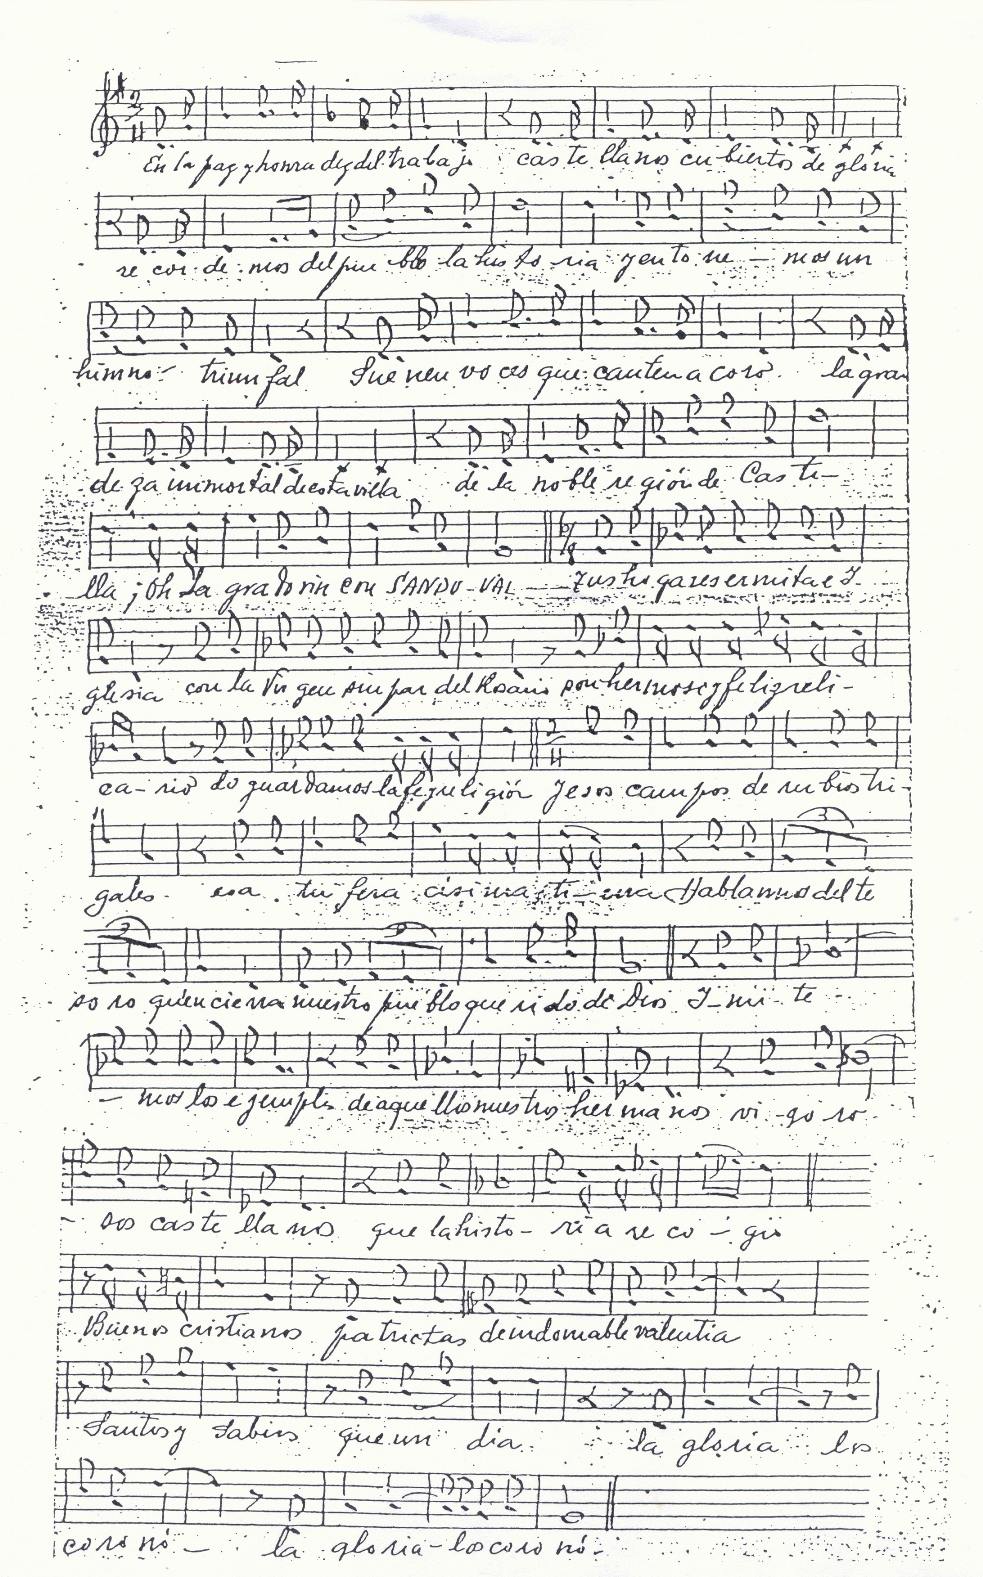 En la paz y honradez del trabajo castellanos cubiertos de gloria
recordemos del pueblo la historia y entone - mos un
himno - triunfal Suenen voces que canten a coro la gran
deza inmortal de esta villa de la noble región de Casti-
lla ¡Oh La grato rincon SANDO-VAL Tus hogares ermita e I-
glesia con la Virgen sin par del Rosario son hermoso y feliz reli-
ca-rio do guardamos la fe y religión Y esos campos de rubios tri-
gales esa tu feracisima ti-erra Hablannos del te
soro quien cierra nuestro pueblo querido de Dios I-mi-te
- mos los ejemplos de aquellos nuestros hermanos vi-go ro-
- sos castellanos que la histo-ria reco-gió
Buenos cristianos patriotas de indomable valentia
Santos y Sabios que un dia la gloria los
coronó - la gloria-los coronó-